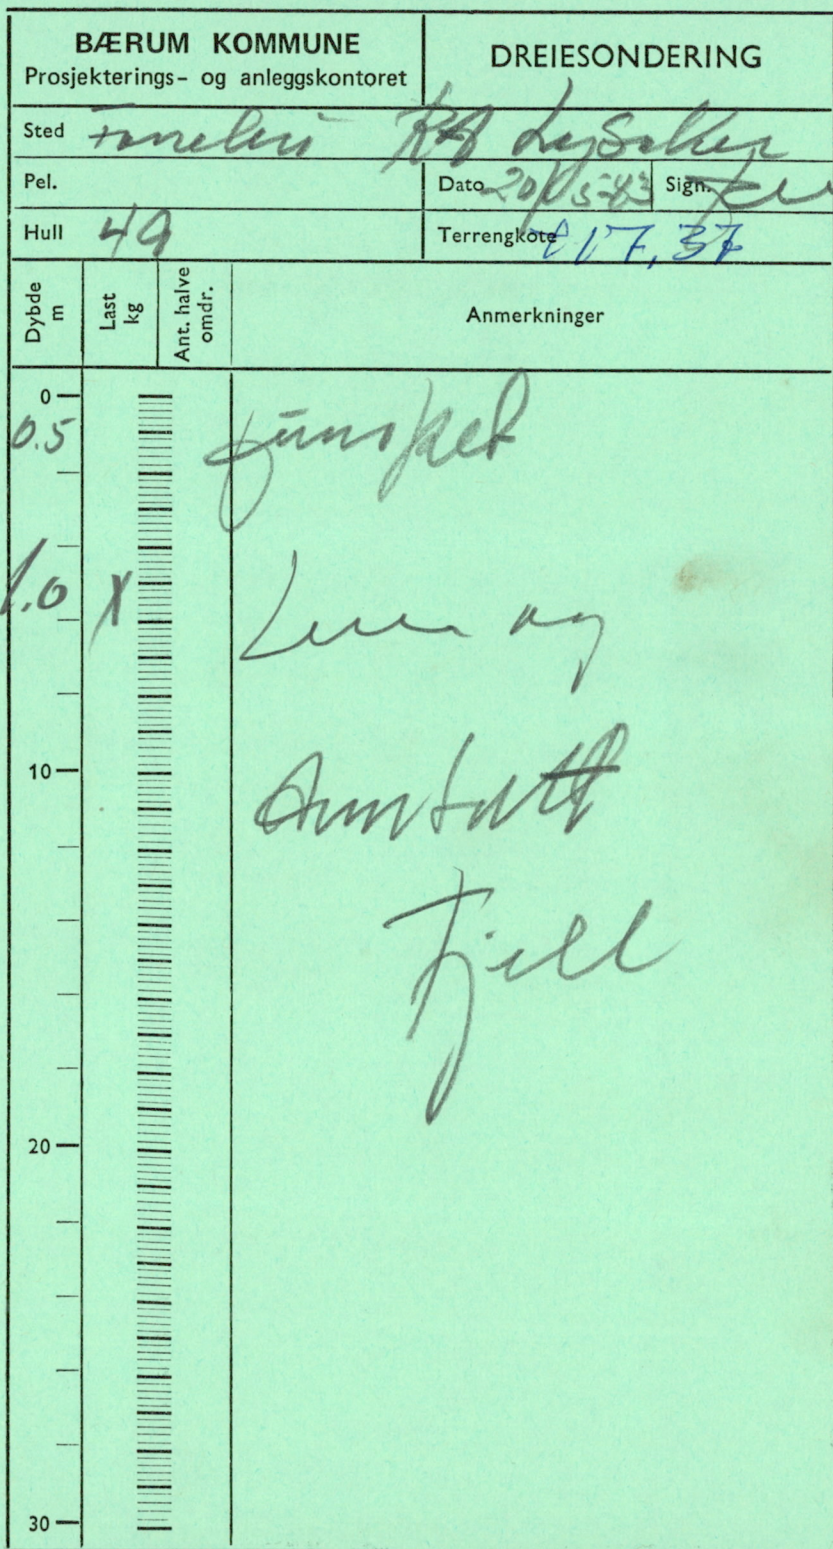 BÆRUM KOMMUNE
Prosjekterings- og anleggskontoret
DREIESONDERING
Sted Lysaker
Pel.
Dato 20/5-83 Sign.
Hull 49
Terrengkote 117,37
Dybde m
Last kg
Ant. halve omdr.
Anmerkninger
0
0.5
1.0 X
Leire og
10
Antatt
Fjell
20
30